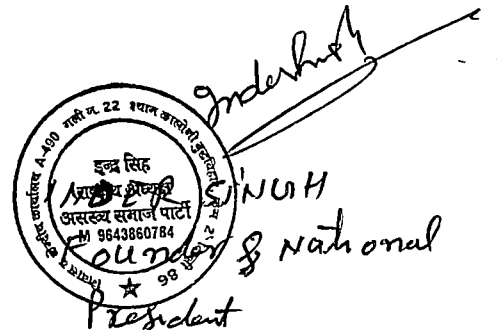 Indersingh
केन्द्रीय कार्यालय A-490 गली नं. 22 श्याम कालोनी बुद्धविहार
86
इन्द्र सिंह
राष्ट्रीय अध्यक्ष
असंख्य समाज पार्टी
M 9643860784
INDER SINGH
Founder & National
President